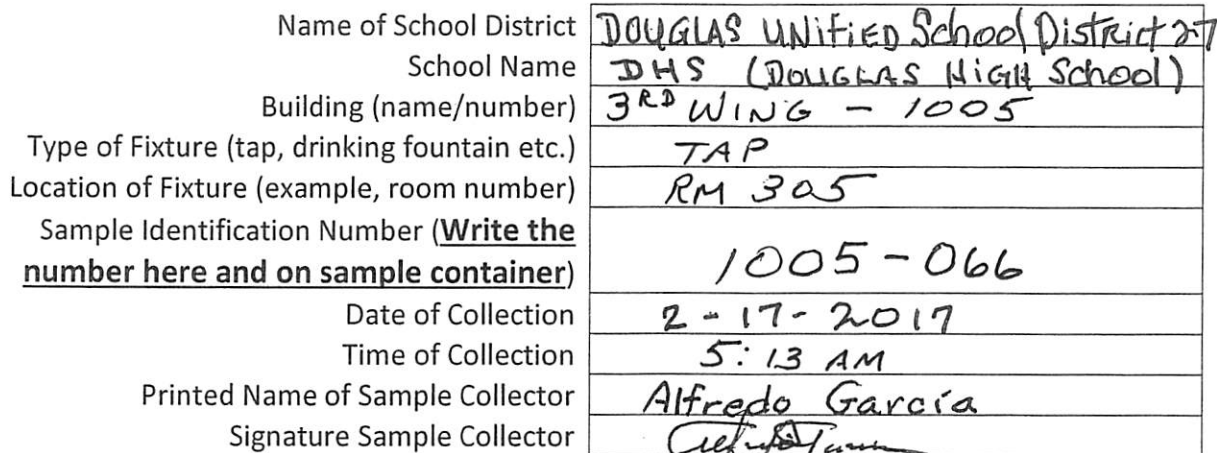 Name of School District DOUGLAS UNIFIED School District 27
School Name DHS (DOUGLAS HIGH School)
Building (name/number) 3RD WING - 1005
Type of Fixture (tap, drinking fountain etc.) TAP
Location of Fixture (example, room number) RM 305
Sample Identification Number (Write the
number here and on sample container) 1005-066
Date of Collection 2-17-2017
Time of Collection 5:13 AM
Printed Name of Sample Collector Alfredo García
Signature Sample Collector